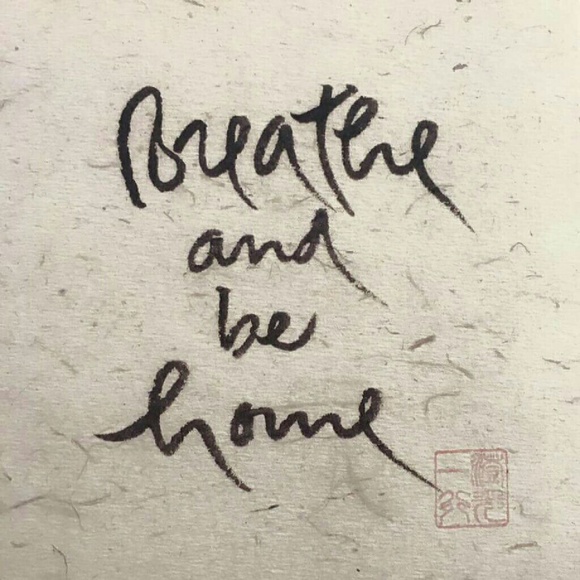 Breathe
and
be
home
一行